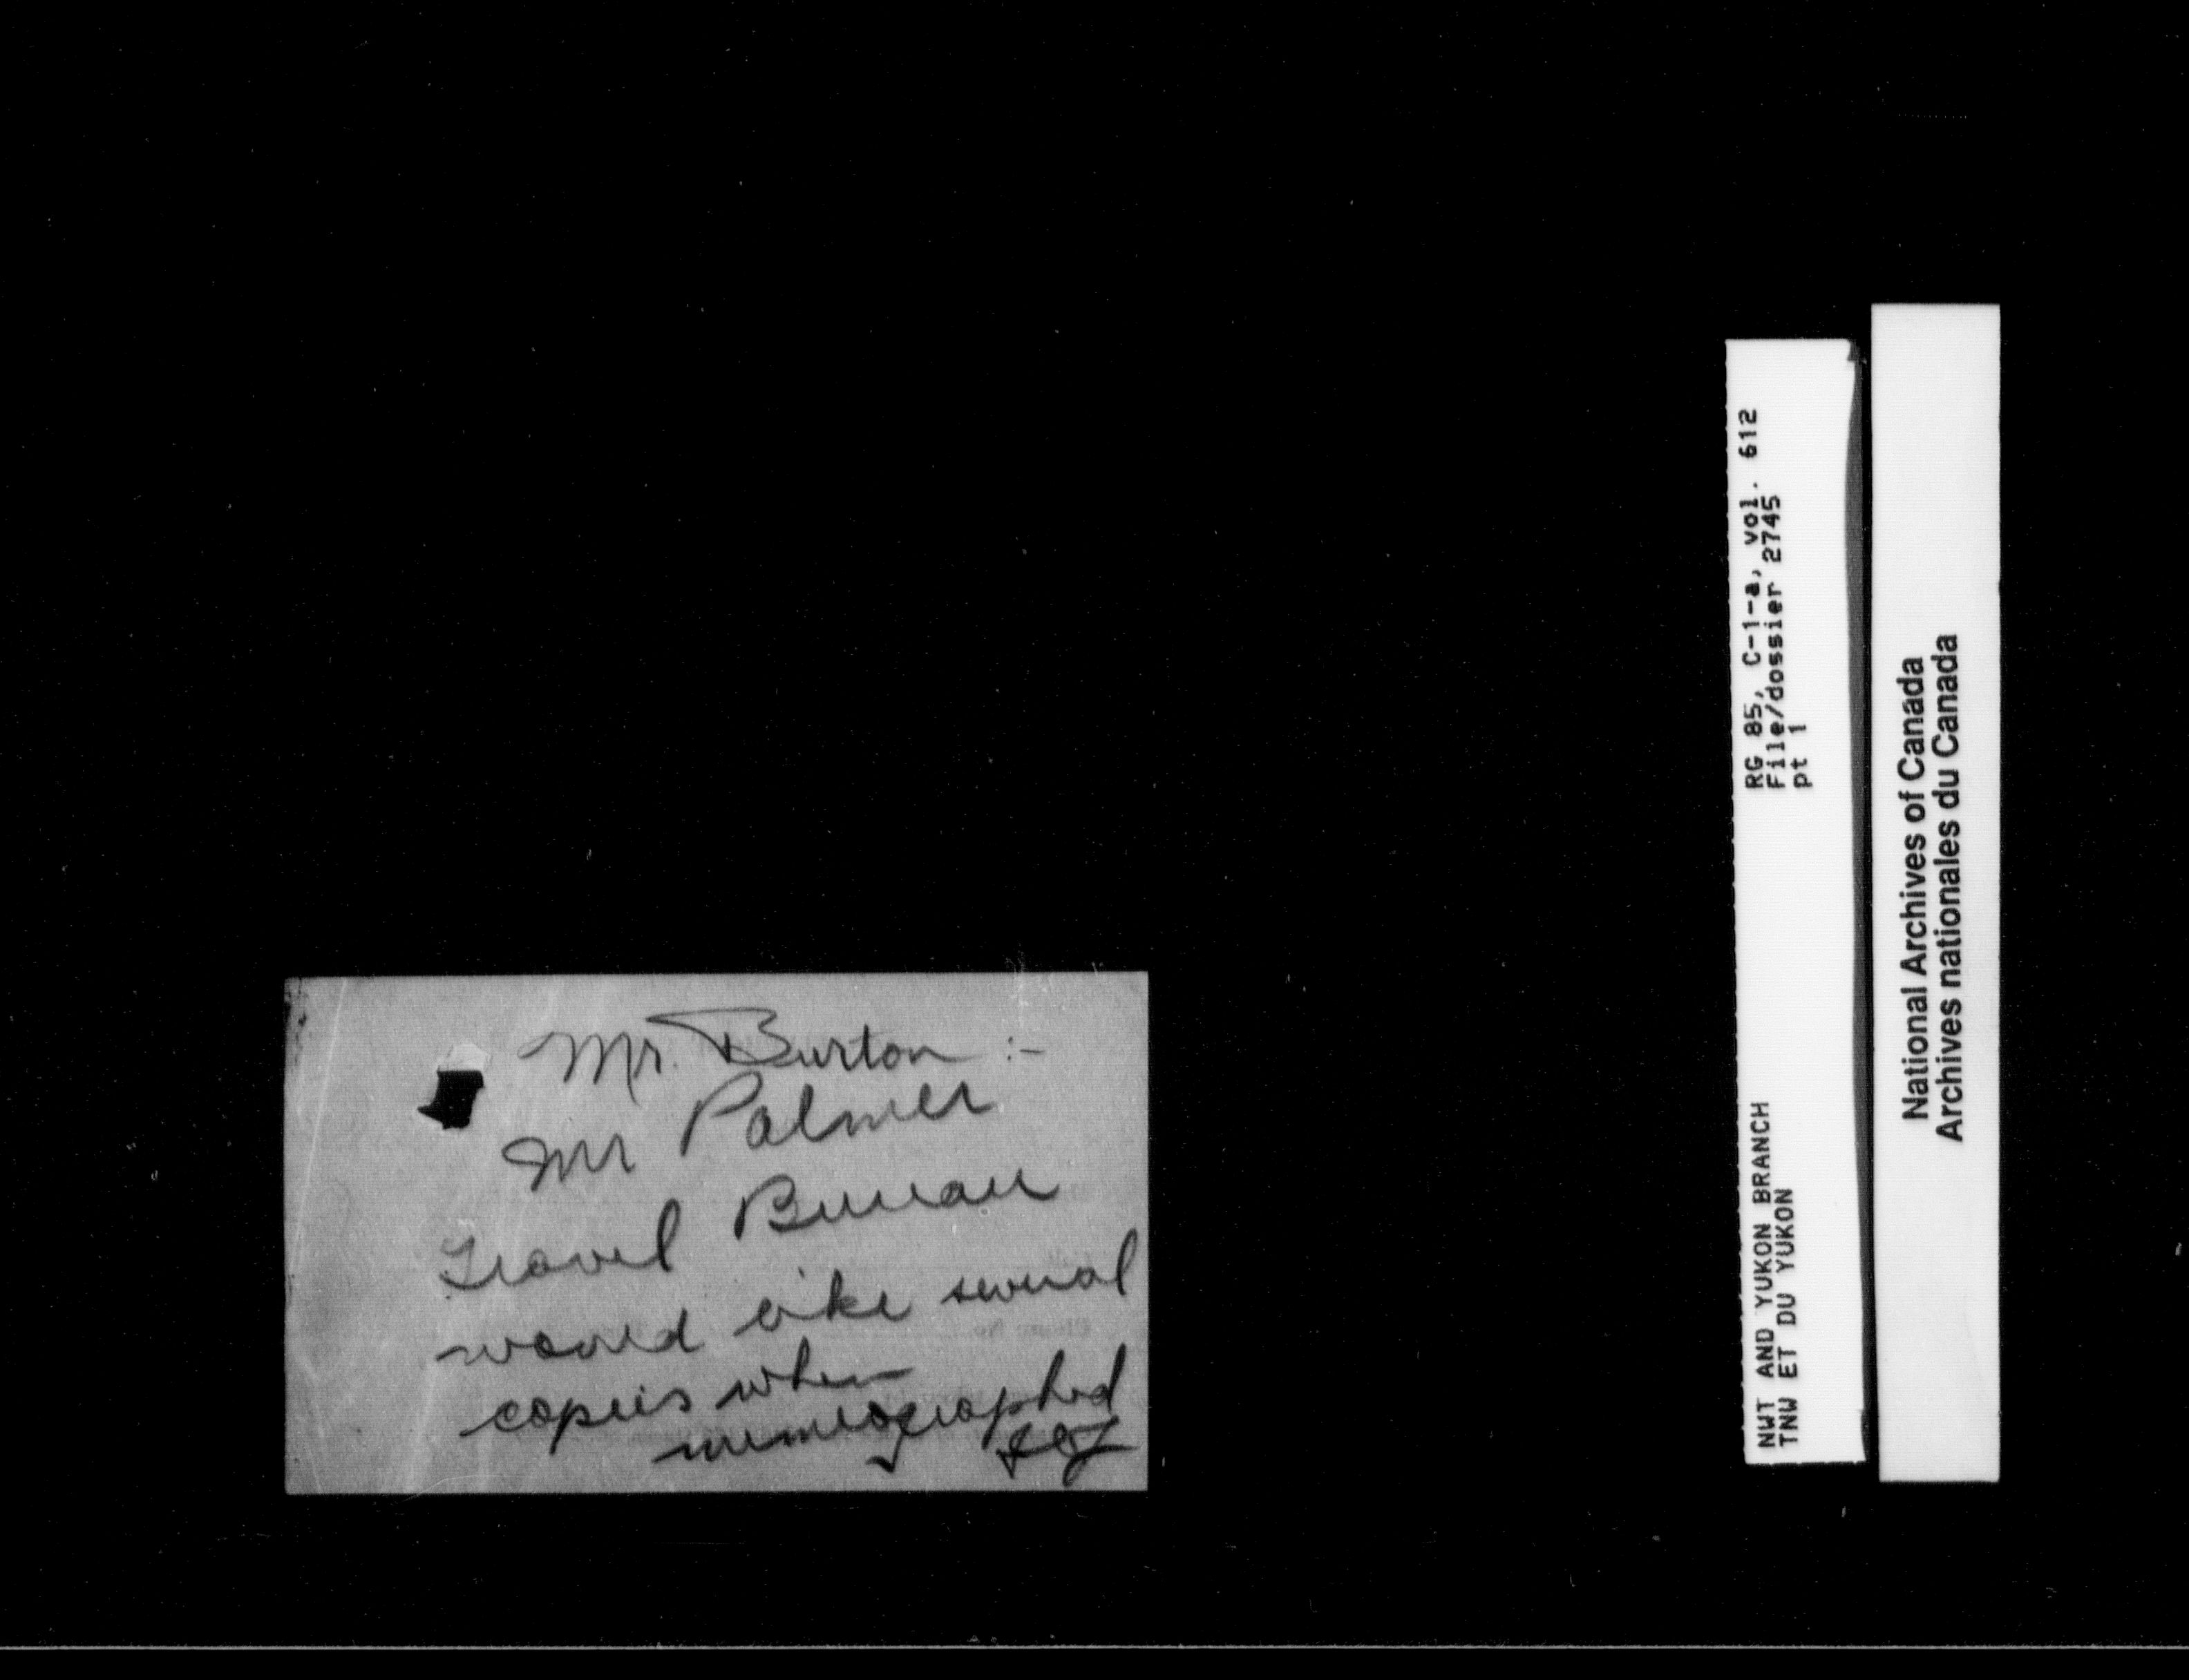 Mr. Burton :-
Mr Palmer
Travel Bureau
would like several
copies when
mimeographed
RG 85, C-1-a, vol. 612
File/dossier 2745
pt 1
NWT AND YUKON BRANCH
TNW ET DU YUKON
National Archives of Canada
Archives nationales du Canada